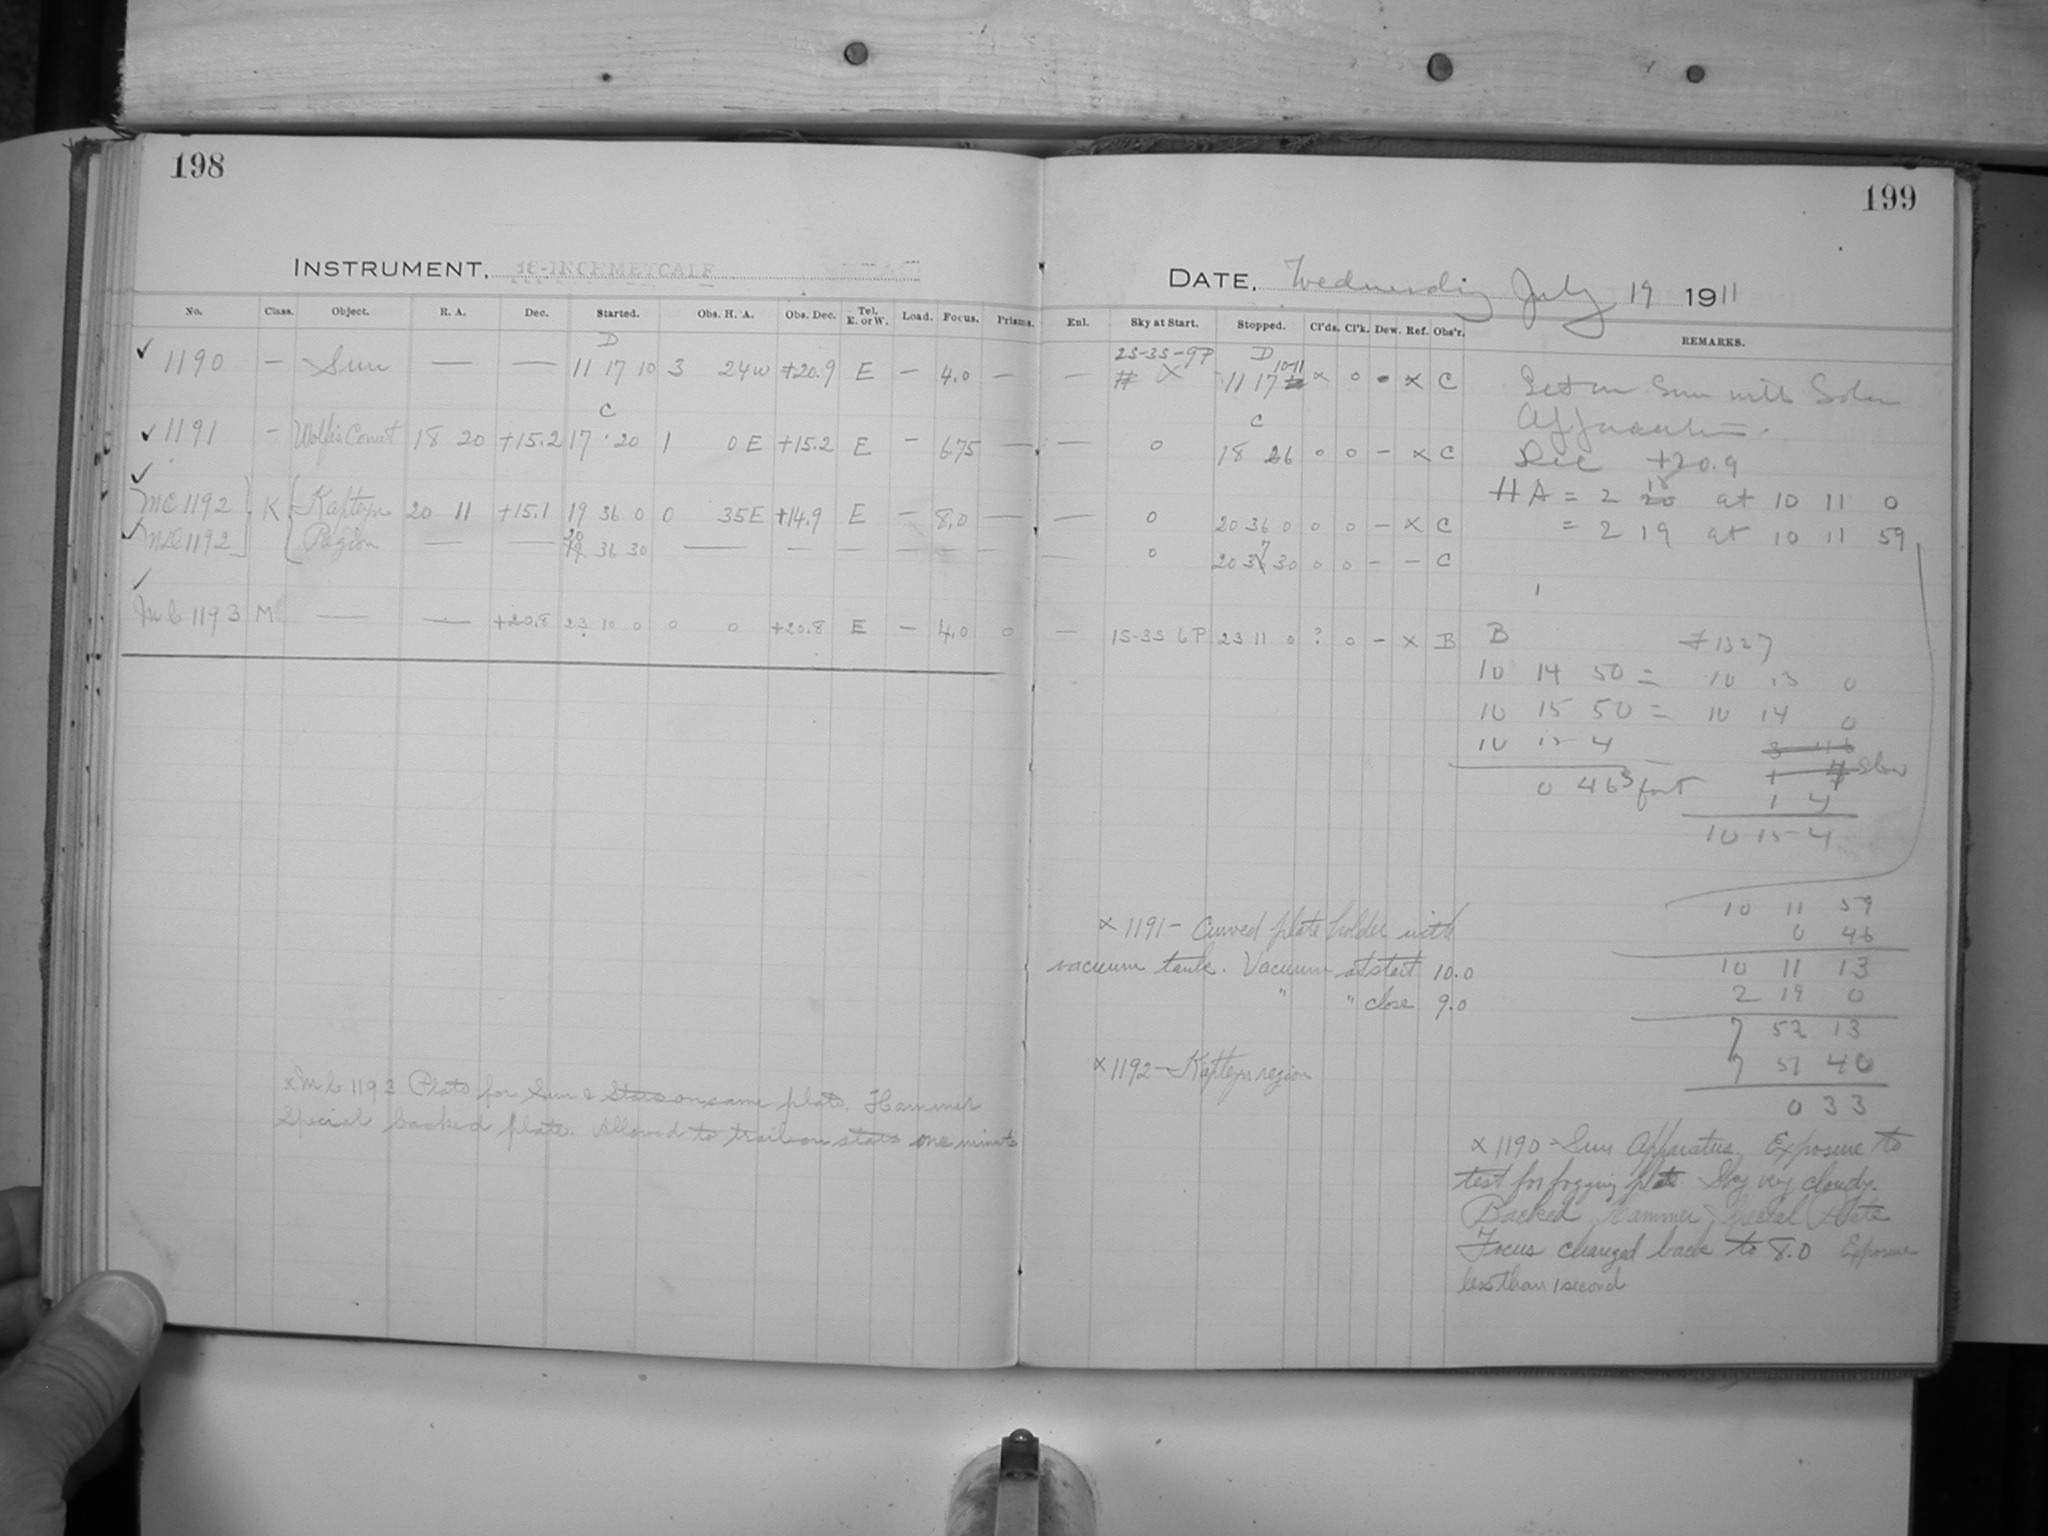 198
INSTRUMENT. 16-INCH METCALF
No. Class. Object. R. A. Dec. Started. Obs. H. A. Obs. Dec. Tel. E. or W. Load. Focus. Prisms.
D
✓ 1190 — Sun — — 11 17 10 3 24W +20.9 E — 4.0 —
C
✓ 1191 — Wolf's Comet 18 20 +15.2 17 20 1 0 E +15.2 E — 6.75 —
✓ MC 1192 K Kapteyn 20 11 +15.1 19 36 0 0 35E +14.9 E — 8.0 —
20
✓ 1192 Region — — 19 36 30 — — — — — —
✓ 1193 M — — +20.8 23 10 0 0 0 +20.8 E — 4.0 0
x 1193 Plate for Sun & Stars on same plate. Hammer
Special backed plate. Allowed to trail on stars one minute
199
DATE. Wednesday July 19 1911
Enl. Sky at Start. Stopped. Cl'ds. Cl'k. Dew. Ref. Obs'r. REMARKS.
2S-3S-9P D 10-11
— # X 11 17 x 0 x C
C
— 0 18 26 0 0 — x C
— 0 20 36 0 0 0 — x C
7
0 20 36 30 0 0 — — C
— 1S-3S 6P 23 11 0 ? 0 — x B
Set on Sun with Solar
Dec +20.9
18
HA = 2 20 at 10 11 0
= 2 19 at 10 11 59
B
10 14 50 = 10 13 0
10 15 50 = 10 14 0
10 15 4
slow
0 46 fast
1 4
10 15 4
10 11 59
0 46
10 11 13
2 19 0
7 52 13
7 51 40
0 33
x 1191 — Curved plate holder with
vacuum tank. Vacuum at start 10.0
" " close 9.0
x 1192 — Kapteyn region
x 1190 — Sun Apparatus. Exposure to
test for fogging plate. Sky very cloudy.
Backed Hammer Special Plate
Focus changed back to 8.0 Exposure
less than 1 second